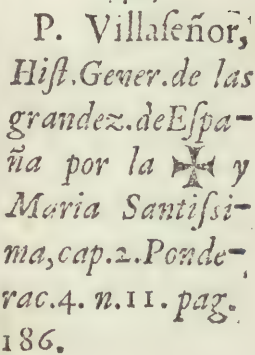 P. Villaſeñor,
Hiſt.Gever.de las
grandez.deEſpa-
ña por la ✠ y
Maria Santiſsi-
ma,cap.2.Ponde-
rac.4. n.11. pag.
186.